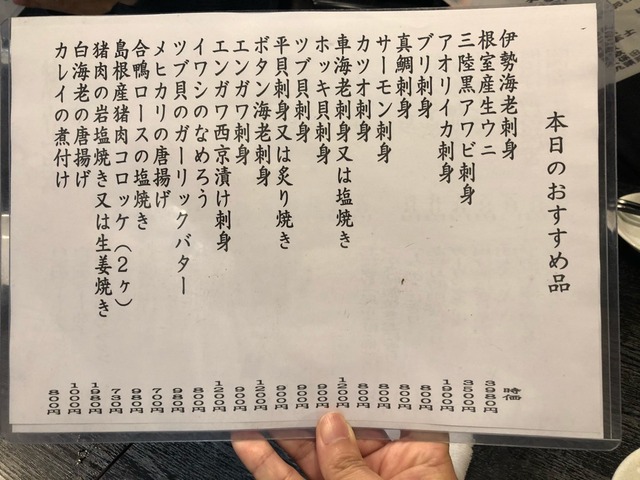 本日のおすすめ品
伊勢海老刺身 時価
根室産生ウニ 3980円
三陸黒アワビ刺身 3500円
アオリイカ刺身 1900円
ブリ刺身 800円
真鯛刺身 800円
サーモン刺身 800円
カツオ刺身 800円
車海老刺身又は塩焼き 1200円
ホッキ貝刺身 900円
ツブ貝刺身 900円
平貝刺身又は炙り焼き 900円
ボタン海老刺身 1200円
エンガワ刺身 900円
エンガワ西京漬け刺身 1200円
イワシのなめろう 800円
ツブ貝のガーリックバター 980円
メヒカリの唐揚げ 700円
合鴨ロースの塩焼き 980円
島根産猪肉コロッケ（2ヶ） 730円
猪肉の岩塩焼き又は生姜焼き 1980円
白海老の唐揚げ 1000円
カレイの煮付け 800円